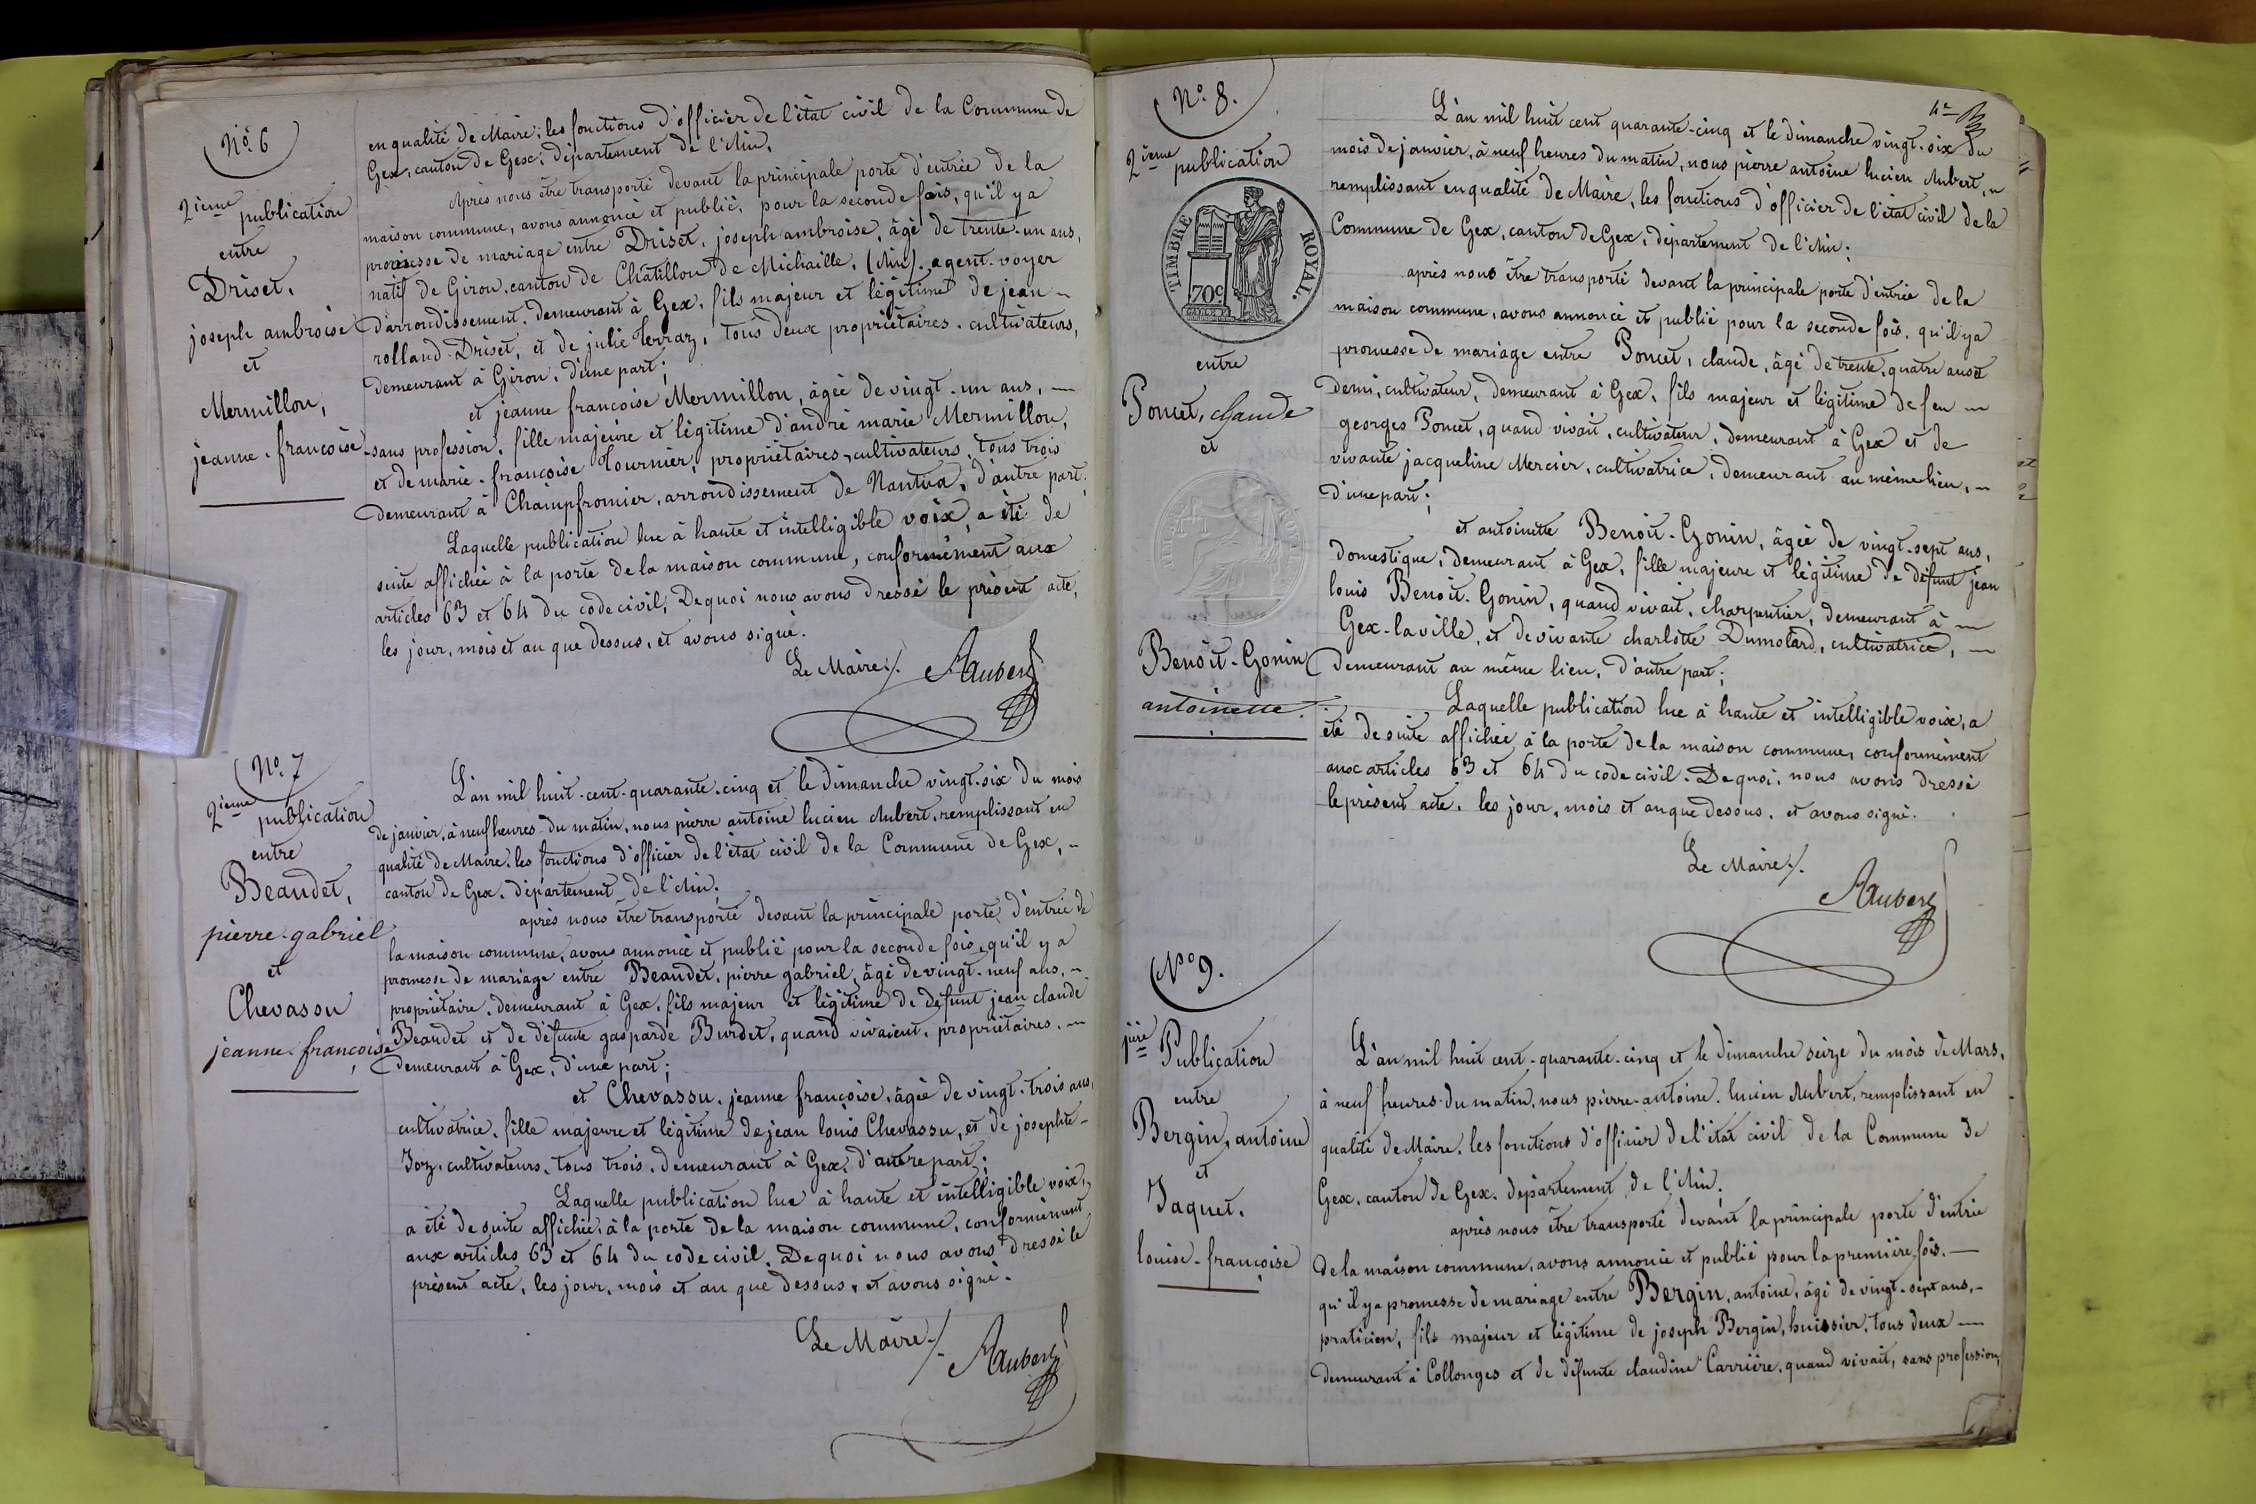 N.o 6
2ième publication
entre
Driset,
joseph ambroise
et
Mermillon,
jeanne-françoise
en qualité de Maire, les fonctions d'officier de l'état civil de la Commune de
Gex, canton de Gex, département de l'Ain,
Après nous être transporté devant la principale porte d'entrée de la
maison commune, avons annoncé et publié, pour la seconde fois, qu'il y a
promesse de mariage entre Driset, joseph ambroise, âgé de trente-un ans,
natif de Giron, canton de Châtillon de Michaille, (Ain). agent-voyer
d'arrondissement, demeurant à Gex, fils majeur et légitime de jean
rolland Driset, et de julie Ferraz, tous deux propriétaires-cultivateurs,
demeurant à Giron, d'une part;
et jeanne françoise Mermillon, âgée de vingt-un ans, —
sans profession, fille majeure et légitime d'andré marie Mermillon,
et de marie-françoise Tournier, propriétaires-cultivateurs, tous trois
demeurant à Champfromier, arrondissement de Nantua, d'autre part.
Laquelle publication lue à haute et intelligible voix, a été de
suite affichée à la porte de la maison commune, conformément aux
articles 63 et 64 du code civil, De quoi nous avons dressé le présent acte,
les jour, mois et an que dessus, et avons signé.
Le Maire /. Aubert
N.o 7
2ième publication
entre
Beaudet,
pierre-gabriel
et
Chevassu
jeanne-françoise
L'an mil huit-cent-quarante-cinq et le dimanche vingt-six du mois
de janvier, à neuf heures du matin, nous pierre antoine lucien Aubert, remplissant en
qualité de Maire, les fonctions d'officier de l'état civil de la Commune de Gex,
canton de Gex, département de l'Ain;
après nous être transporté devant la principale porte d'entrée de
la maison commune, avons annoncé et publié pour la seconde fois, qu'il y a
promesse de mariage entre Beaudet, pierre gabriel, âgé de vingt-neuf ans,
propriétaire, demeurant à Gex, fils majeur et légitime de défunt jean claude
Beaudet et de défunte gasparde Burdet, quand vivaient, propriétaires,
demeurant à Gex, d'une part;
et Chevassu, jeanne françoise, âgée de vingt-trois ans,
cultivatrice, fille majeure et légitime de jean louis Chevassu, et de josephte
Joz, cultivateurs, tous trois, demeurant à Gex, d'autre part;
Laquelle publication lue à haute et intelligible voix,
a été de suite affichée, à la porte de la maison commune, conformément
aux articles 63 et 64 du code civil. De quoi nous avons dressé le
présent acte, les jour, mois et an que dessus, et avons signé.
Le Maire /. Aubert
N.o 8.
2ième publication
TIMBRE ROYAL.
70c
entre
Poncet, claude
et
Benoit-Gonin
antoinette.
L'an mil huit cent quarante-cinq et le dimanche vingt-six du
mois de janvier, à neuf heures du matin, nous pierre antoine lucien Aubert,
remplissant en qualité de Maire, les fonctions d'officier de l'état civil de la
Commune de Gex, canton de Gex, département de l'Ain;
après nous être transporté devant la principale porte d'entrée de la
maison commune, avons annoncé et publié pour la seconde fois, qu'il y a
promesse de mariage entre Poncet, claude, âgé de trente-quatre ans et
demi, cultivateur, demeurant à Gex, fils majeur et légitime de feu
georges Poncet, quand vivait, cultivateur, demeurant à Gex et de
vivante jacqueline Mercier, cultivatrice, demeurant au même lieu,
d'une part;
et antoinette Benoit-Gonin, âgée de vingt-sept ans,
domestique, demeurant à Gex, fille majeure et légitime de défunt jean
louis Benoit-Gonin, quand vivait, charpentier, demeurant à
Gex-la ville, et de vivante charlotte Dumolard, cultivatrice,
demeurant au même lieu, d'autre part;
Laquelle publication lue à haute et intelligible voix, a
été de suite affichée, à la porte de la maison commune, conformément
aux articles 63 et 64 du code civil. De quoi, nous avons dressé
le présent acte, les jour, mois et an que dessus, et avons signé.
Le Maire /.
Aubert
N.o 9.
1ière Publication
entre
Bergin, antoine
et
Jaquet,
louise-françoise
L'an mil huit cent-quarante-cinq et le dimanche seize du mois de Mars,
à neuf heures du matin, nous pierre-antoine lucien Aubert, remplissant en
qualité de Maire, les fonctions d'officier de l'état civil de la Commune de
Gex, canton de Gex, département de l'Ain;
après nous être transporté devant la principale porte d'entrée
de la maison commune, avons annoncé et publié pour la première fois. —
qu'il y a promesse de mariage entre Bergin, antoine, âgé de vingt-sept ans,
praticien, fils majeur et légitime de joseph Bergin, huissier, tous deux —
demeurant à Collonges et de défunte claudine Carrière, quand vivait, sans profession,